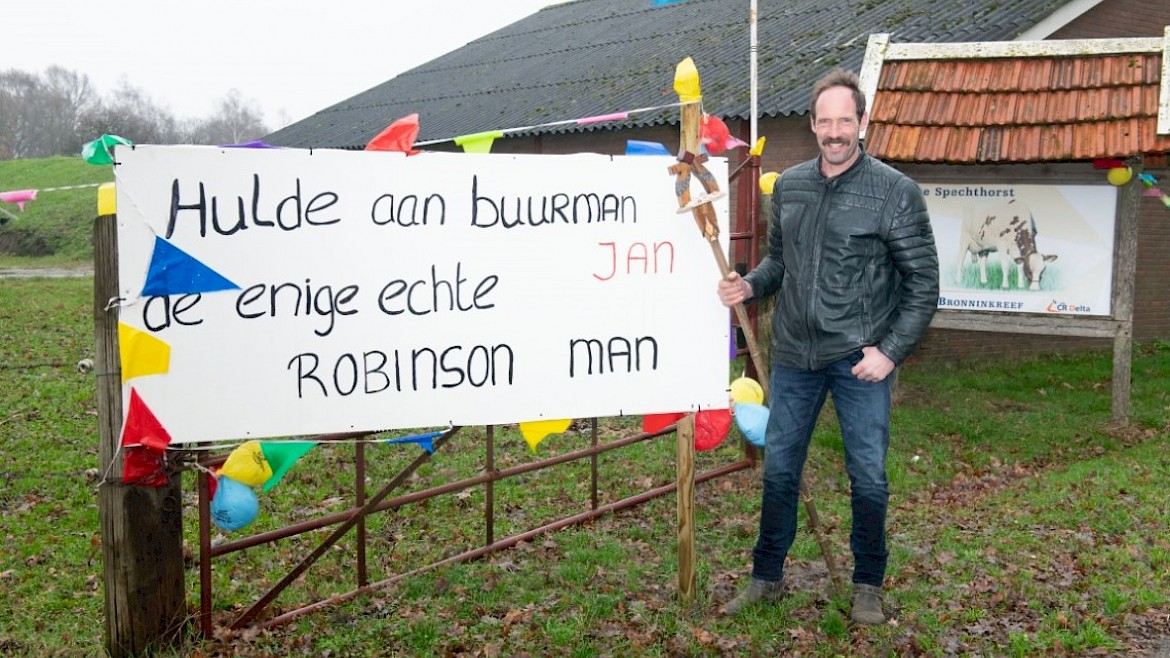 Hulde aan buurman
JAN
de enige echte
ROBINSON man
e Spechthorst
BRONNINKREEF
CR Delta